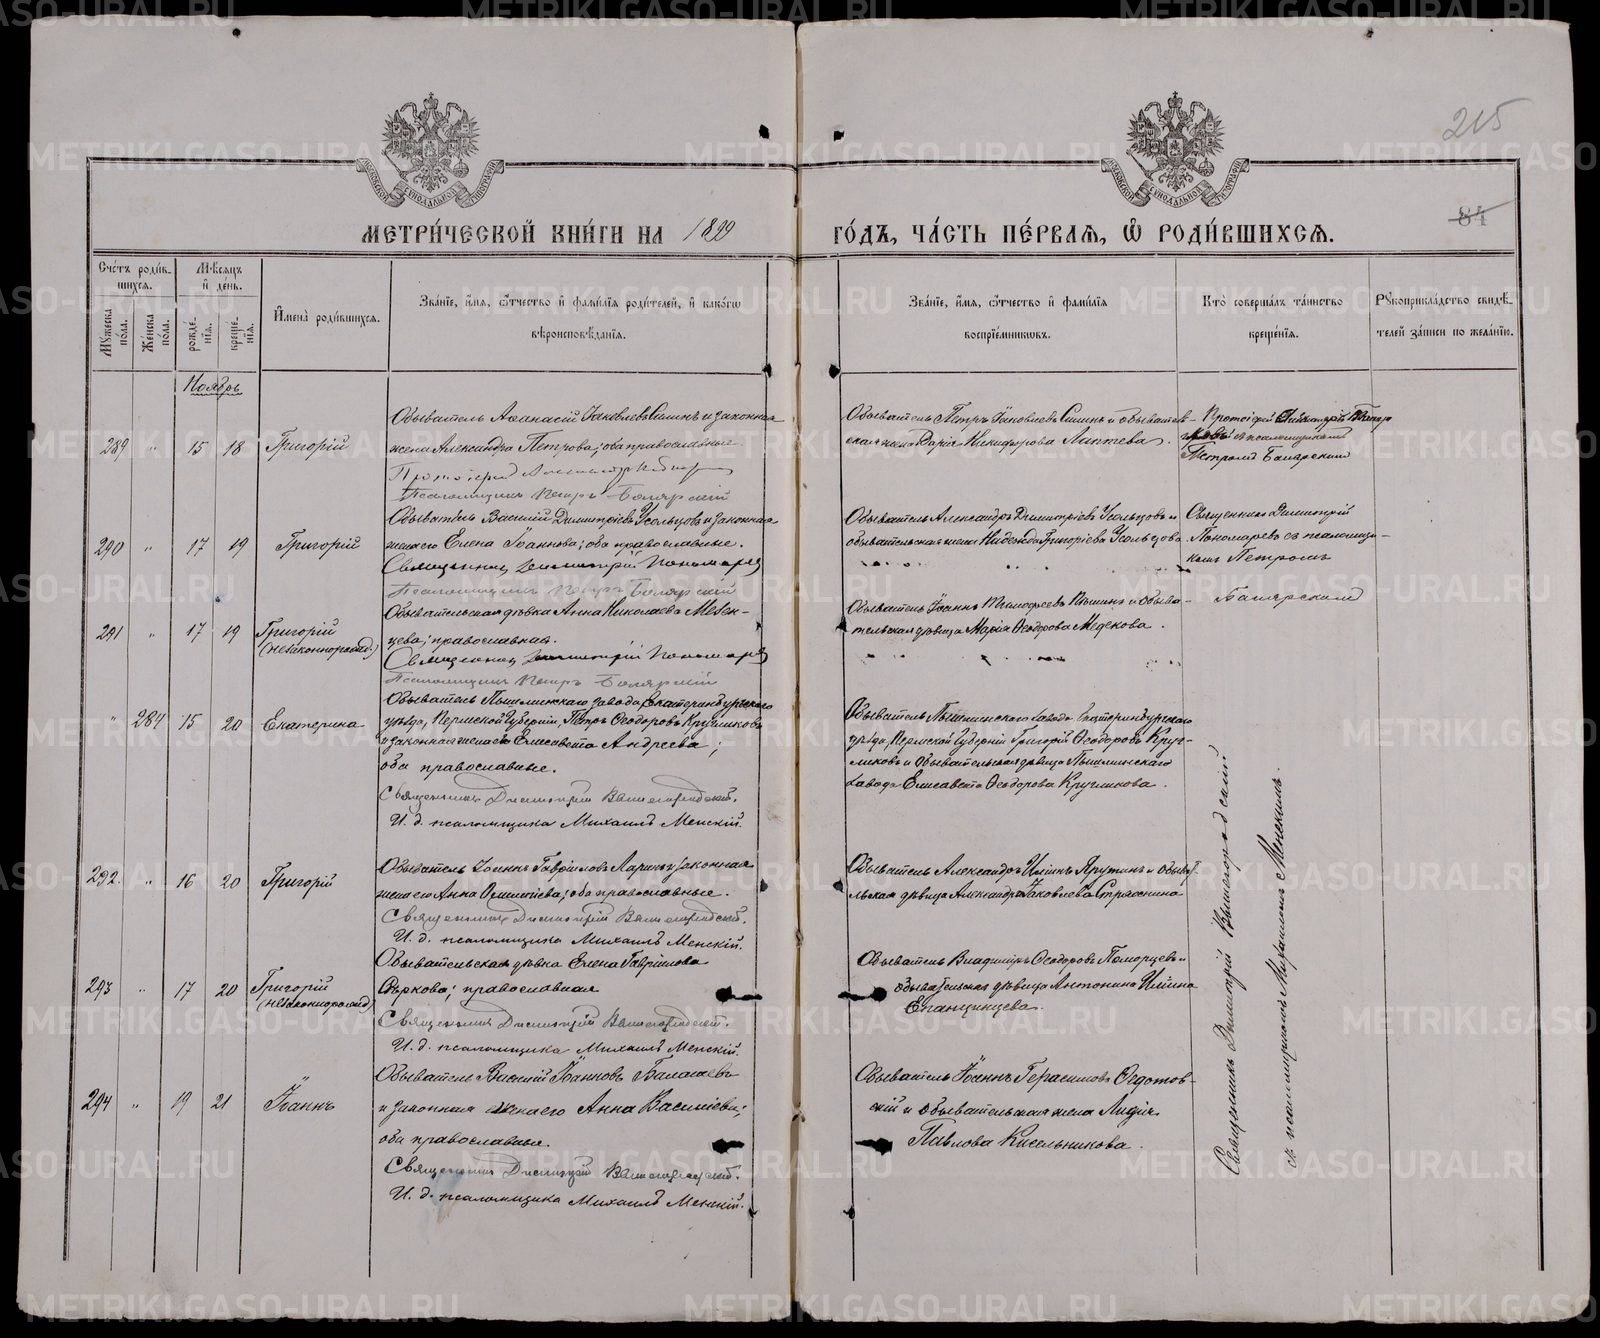 215
84
МЕТРИ́ЧЕСКОЙ КНИ́ГИ НА 1899 ГО́ДЪ, ЧА́СТЬ ПЕ́РВАѦ, Ѽ РОДИ́ВШИХСѦ.
Сче́тъ роди́в-
шихся.
Мѣ́сяцъ
и́ де́нь.
Му́жеска
по́ла.
Же́нска
по́ла.
рожде́-
нїя.
креще́-
нїя.
И҆мена̀ роди́вшихся.
Зва́нїе, и҆́мя, ѻ҆́тчество и҆ фами́лїя роди́телей, и҆ како́гѡ
вѣроисповѣ́данїя.
Зва́нїе, и҆́мя, ѻ҆́тчество и҆ фами́лїя
воспрїе́мниковъ.
Кто̀ соверша́лъ та́инство
креще́нїя.
Рꙋкоприкла́дство свидѣ́-
телей за́писи по жела́нїю.
Ноябрь
289 " 15 18 Григорій
Обыватель Аѳанасій Іаковлевъ Симинъ и законная
жена Александра Петрова; оба православные.
Протоіерей Александръ
Псаломщикъ Петръ Боярскій
Обыватель Петръ Іаковлевъ Симинъ и обыватель-
ская жена Дарія Никифорова Лаптева.
Протоіерей Александръ
съ псаломщикомъ
Петромъ Боярскимъ
290 " 17 19 Григорій
Обыватель Василій Димитріевъ Усольцовъ и законная
жена его Елена Іоаннова; оба православные.
Священникъ Димитрій Пономаревъ
Псаломщикъ Петръ Боярскій
Обыватель Александръ Димитріевъ Усольцовъ и
обывательская жена Надежда Григоріева Усольцова
Священникъ Димитрій
Пономаревъ съ псаломщи-
комъ Петромъ
Боярскимъ
291 " 17 19 Григорій
(незаконнорожд.)
Обывательская дѣвка Анна Николаева Мезен-
цева; православная.
Священникъ Димитрій Пономаревъ
Псаломщикъ Петръ Боярскій
Обыватель Іоаннъ Тимоѳеевъ и обыва-
тельская дѣвица Марія Ѳеодорова Медекова.
" 284 15 20 Екатерина
Обыватель Пышминскаго завода, Екатеринбургскаго
уѣзда, Пермской Губерніи, Петръ Ѳеодоровъ Кругликовъ
и законная жена его Елисавета Андреева;
оба православные.
Священникъ Димитрій Вышегородскій.
И. д. псаломщика Михаилъ Менскій.
Обыватель Пышминскаго завода Екатеринбургскаго
уѣзда, Пермской Губерніи Григорій Ѳеодоровъ Круг-
ликовъ и обывательская дѣвица Пышминскаго
завода Елисавета Ѳеодорова Кругликова.
292. " 16 20 Григорій
Обыватель Іоаннъ Гавріиловъ Ларинъ и законная
жена его Анна; оба православные.
Священникъ Димитрій Вышегородскій.
И. д. псаломщика Михаилъ Менскій.
Обыватель Александръ Ильинъ Ярутинъ и обыва-
тельская дѣвица Александра Іаковлева
293 " 17 20 Григорій
(незаконнорожд.)
Обывательская дѣвка Елена Гавріилова
Зыркова; православная
Священникъ Димитрій Вышегородскій.
И. д. псаломщика Михаилъ Менскій.
Обыватель Владиміръ Ѳеодоровъ Поморцевъ и
обывательская дѣвица Антонина Ильина
Епанчинцева.
294 " 19 21 Іоаннъ
Обыватель Василій Іоанновъ Балашевъ
и законная жена его Анна Василіева;
оба православные.
Священникъ Димитрій Вышегородскій.
И. д. псаломщика Михаилъ Менскій.
Обыватель Іоаннъ Герасимовъ Ѳедотов-
скій и обывательская жена Лидія
Павлова Кисельникова.
Священникъ Димитрій Вышегородскій
съ псаломщикомъ Михаиломъ Менскимъ.
METRIKI.GASO-URAL.RU